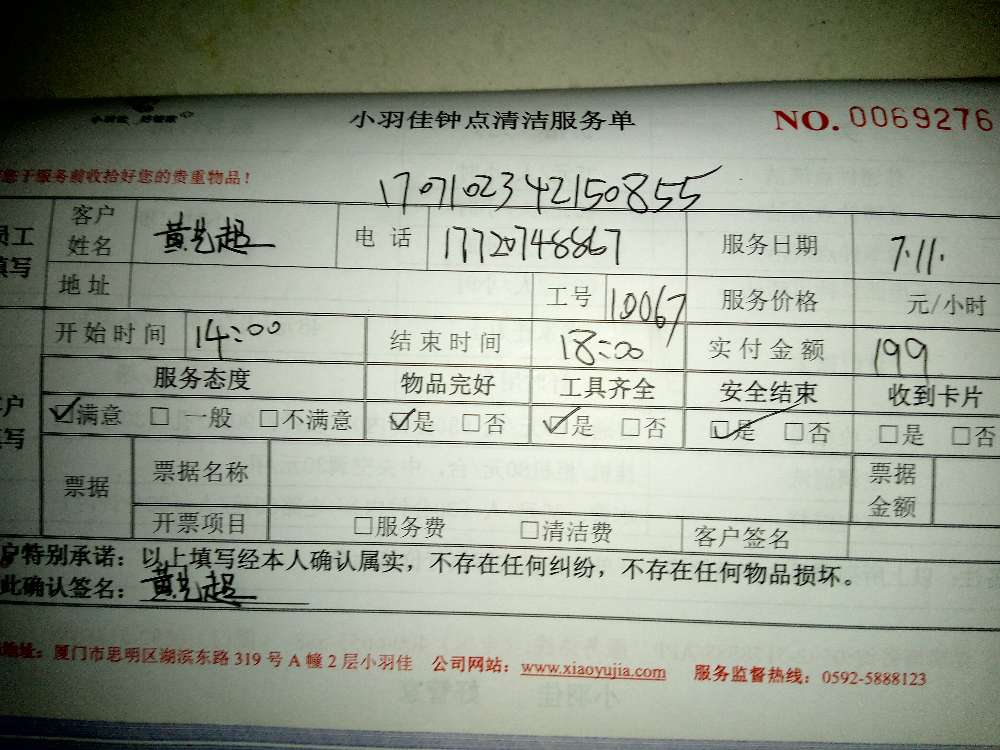 小羽佳 好管家
小羽佳钟点清洁服务单 NO. 0069276
您于服务前收拾好您的贵重物品！
1707102342150855
员工填写 客户姓名 黄先超 电话 17720748867 服务日期 7.11.
地址 工号 10067 服务价格 元/小时
开始时间 14:00 结束时间 18:00 实付金额 199
服务态度 物品完好 工具齐全 安全结束 收到卡片
☑满意 □一般 □不满意 ☑是 □否 ☑是 □否 ☑是 □否 □是 □否
票据 票据名称 票据金额
开票项目 □服务费 □清洁费 客户签名
户特别承诺：以上填写经本人确认属实，不存在任何纠纷，不存在任何物品损坏。
此确认签名：黄先超
地址：厦门市思明区湖滨东路319号A幢2层小羽佳 公司网站：www.xiaoyujia.com 服务监督热线：0592-5888123